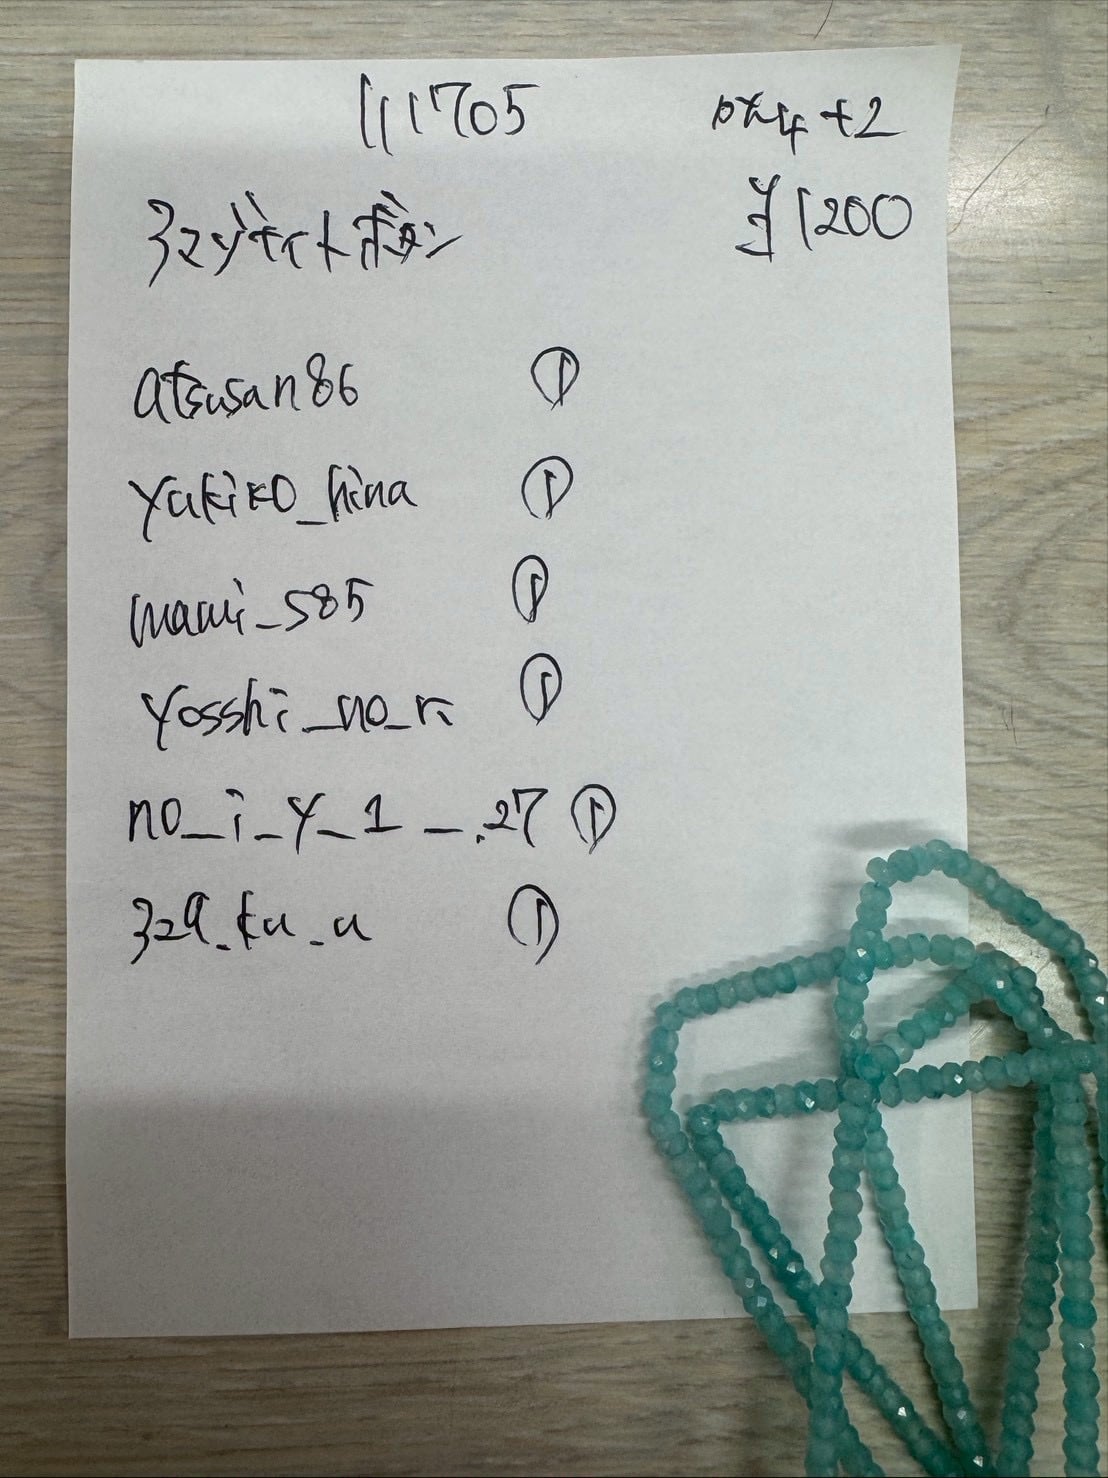 111705
¥1200
atsusan86 ①
yukiko_hina ①
mami_s85 ①
yosshi_no_ri ①
no_i_y_1_.27 ①
329_ku_u ①